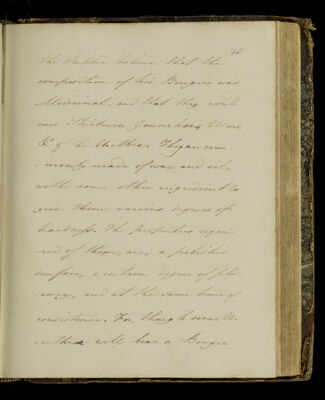 the Public believe that the
composition of his Bougies was
Medicinal, and that they would
cure Strictures, Gonorrhaea,
&c of the Urethra. They are com-
monly made of wax and oil,
with some other ingredient to
give them various degrees of
hardness. The properties requi-
red of them, are, a polished
surface, a certain degree of pli-
ancy, and at the same time of
consistence. For, though some U-
rethra will bear a Bougie